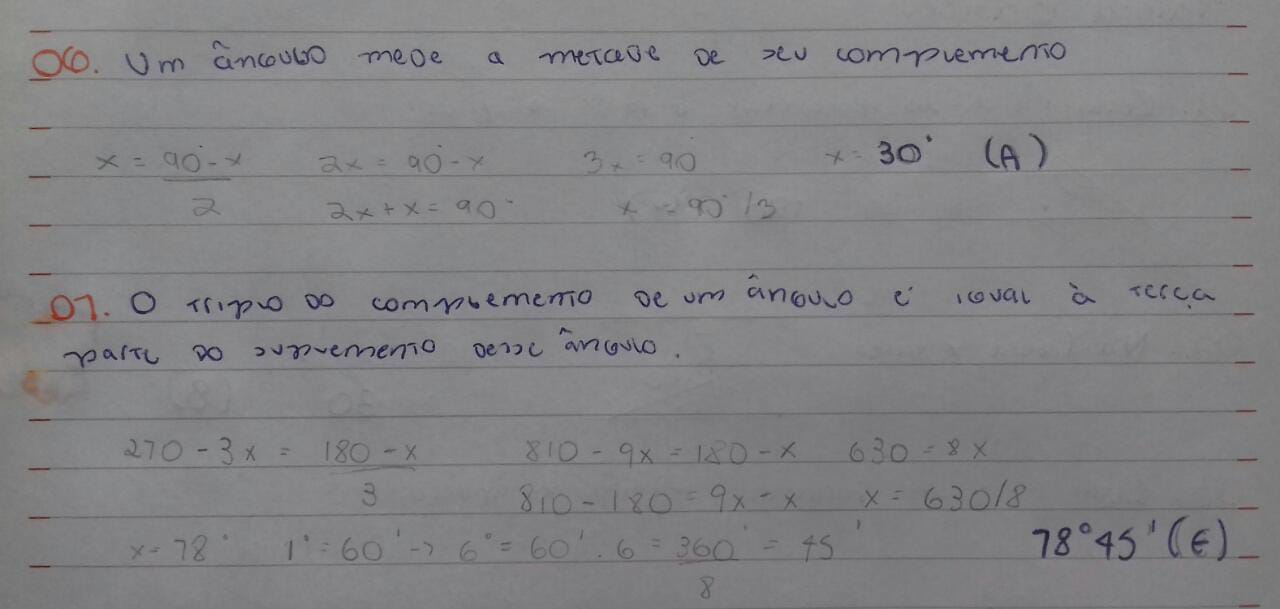 06. Um ângulo mede a metade de seu complemento
x = 90° - x / 2 2x = 90° - x 3x = 90 x = 30° (A)
2x + x = 90° x = 90° / 3
07. O triplo do complemento de um ângulo é igual à terça
parte do suplemento desse ângulo.
270 - 3x = 180 - x / 3 810 - 9x = 180 - x 630 = 8x
810 - 180 = 9x - x x = 630/8
x = 78° 1° = 60' -> 6° = 60' . 6 = 360' / 8 = 45' 78° 45' (E)